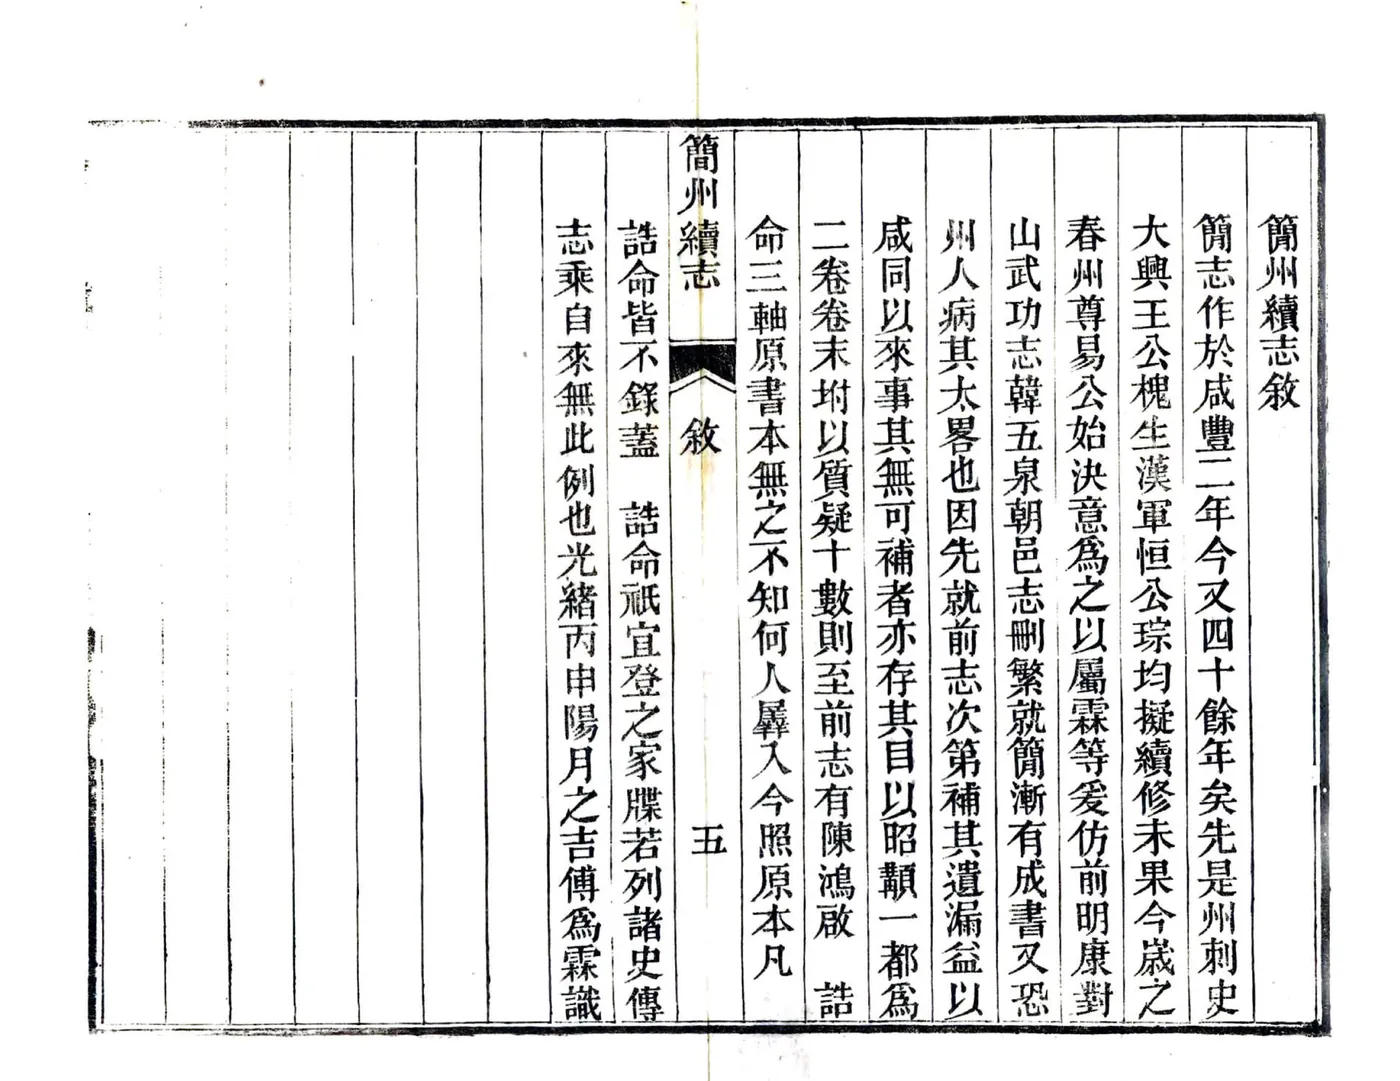 簡州續志敘
簡志作於咸豐二年今又四十餘年矣先是州刺史
大興王公槐生漢軍恒公琮均擬續修未果今歲之
春州尊易公始決意爲之以屬霖等爰仿前明康對
山武功志韓五泉朝邑志刪繁就簡漸有成書又恐
州人病其太畧也因先就前志次第補其遺漏益以
咸同以來事其無可補者亦存其目以昭顯一都爲
二卷卷末坿以質疑十數則至前志有陳鴻啟　誥
命三軸原書本無之不知何人羼入今照原本凡
簡州續志　敘　五
誥命皆不錄蓋　誥命祇宜登之家牒若列諸史傳
志乘自來無此例也光緒丙申陽月之吉傅爲霖識